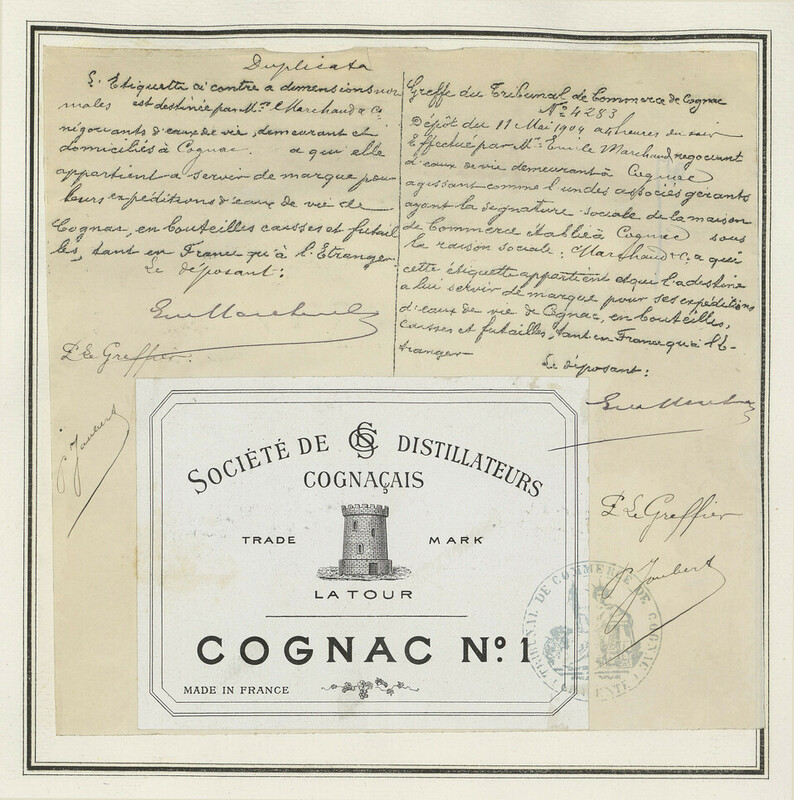 Duplicata
L'Etiquette ci contre a dimensions nor
males est destinée par Mrs E Marchaud & Co
négociants d'eaux de vie, demeurant et
domiciliés à Cognac. a qui elle
appartient a servir de marque pour
leurs expéditions d'eaux de vie de
Cognac, en bouteilles caisses et futail
les, tant en France qu'à l'Etranger.
Le déposant:
P. Le Greffier.
Greffe du Tribunal de Commerce de Cognac
No 4283
Dépôt du 11 Mai 1904 a 4 heures du soir
Effectué par Mr Emile Marchaud négociant
d'eaux de vie demeurant à Cognac
agissant comme l'un des associés gérants
ayant la signature sociale de la maison
de Commerce établie à Cognac sous
la raison sociale: E Marchaud & C. a qui
cette étiquette appartient et qui l'a destine
a lui servir de marque pour ses expéditions
d'eaux de vie de Cognac, en bouteilles,
caisses et futailles, tant en France qu'à l'E-
tranger
Le déposant:
P. Le Greffier
P Joubert
SOCIÉTÉ DE DISTILLATEURS
COGNAÇAIS
TRADE MARK
LA TOUR
COGNAC No. 1
MADE IN FRANCE
TRIBUNAL DE COMMERCE DE COGNAC